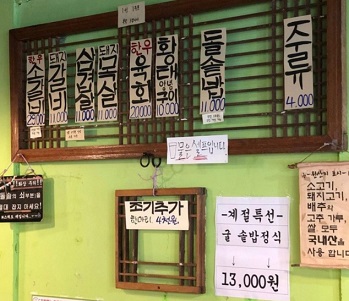 한우
소갈비
25,000
돼지
갈비
11,000
삼겹살
11,000
돼지
목살
11,000
한우
육회
20,000
황태
양념구이
10,000
돌솥밥
11,000
주류
4,000
물은 셀프입니다
조기추가
한마리, 4천원
-계절특선-
굴 솥밥정식
↓
13,000원
소고기,
돼지고기,
배추와
고추 가루,
쌀 모두
국내산을
사용 합니다.